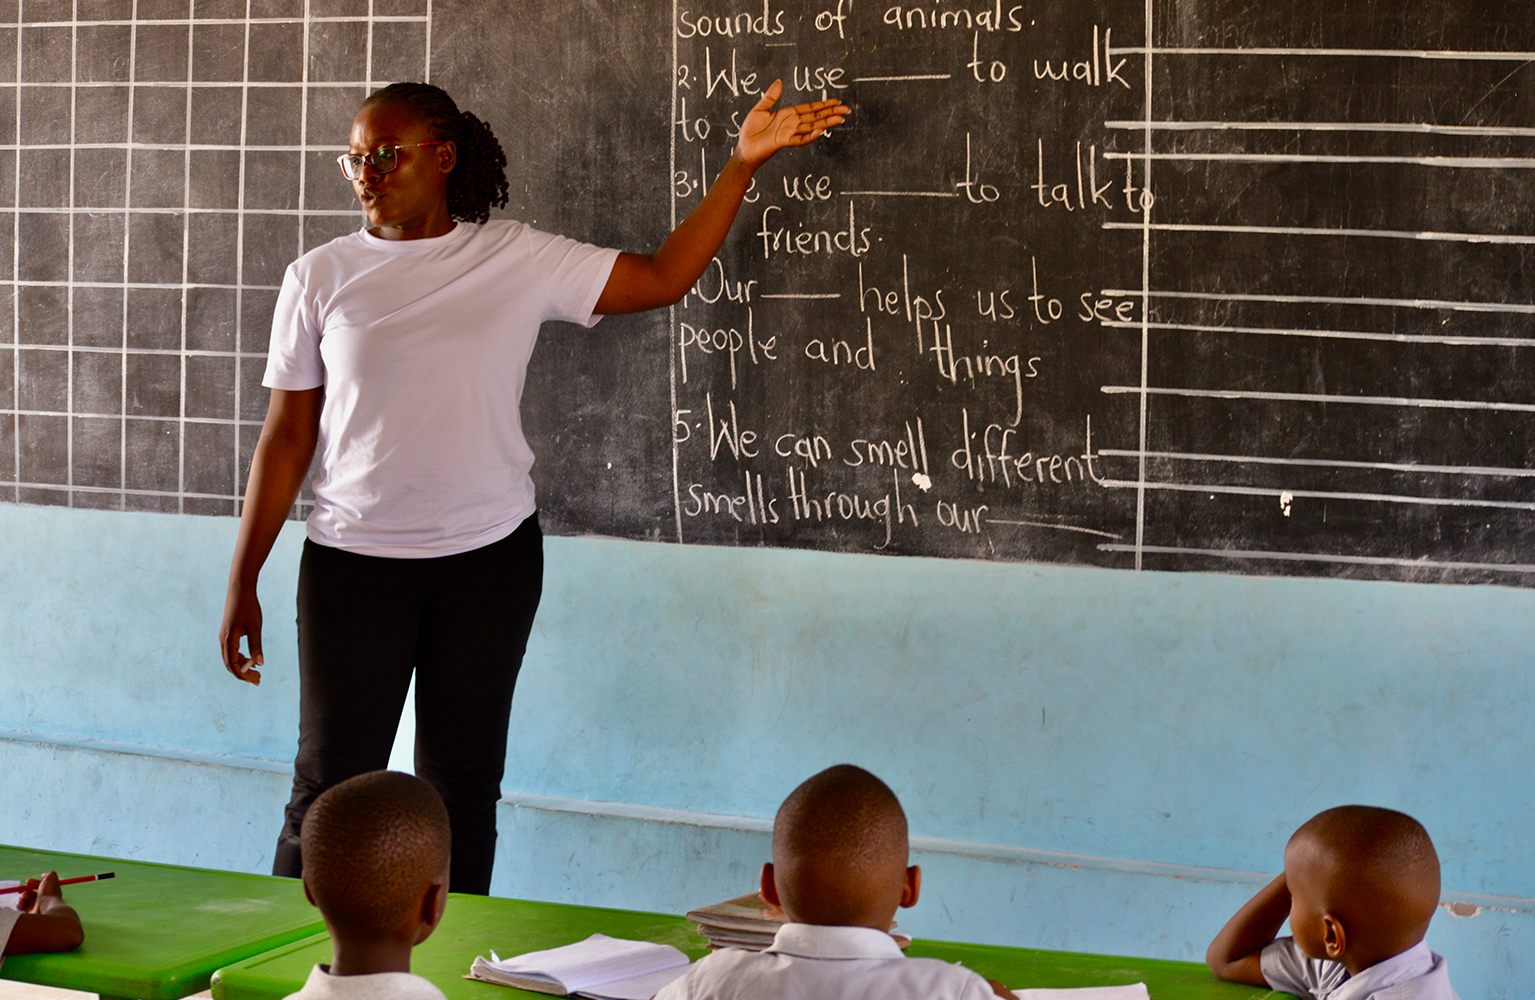 sounds of animals.
2. We use ____ to walk
to
3. use ____ to talk to
friends.
Our ____ helps us to see
people and things
5. We can smell different
smells through our ____